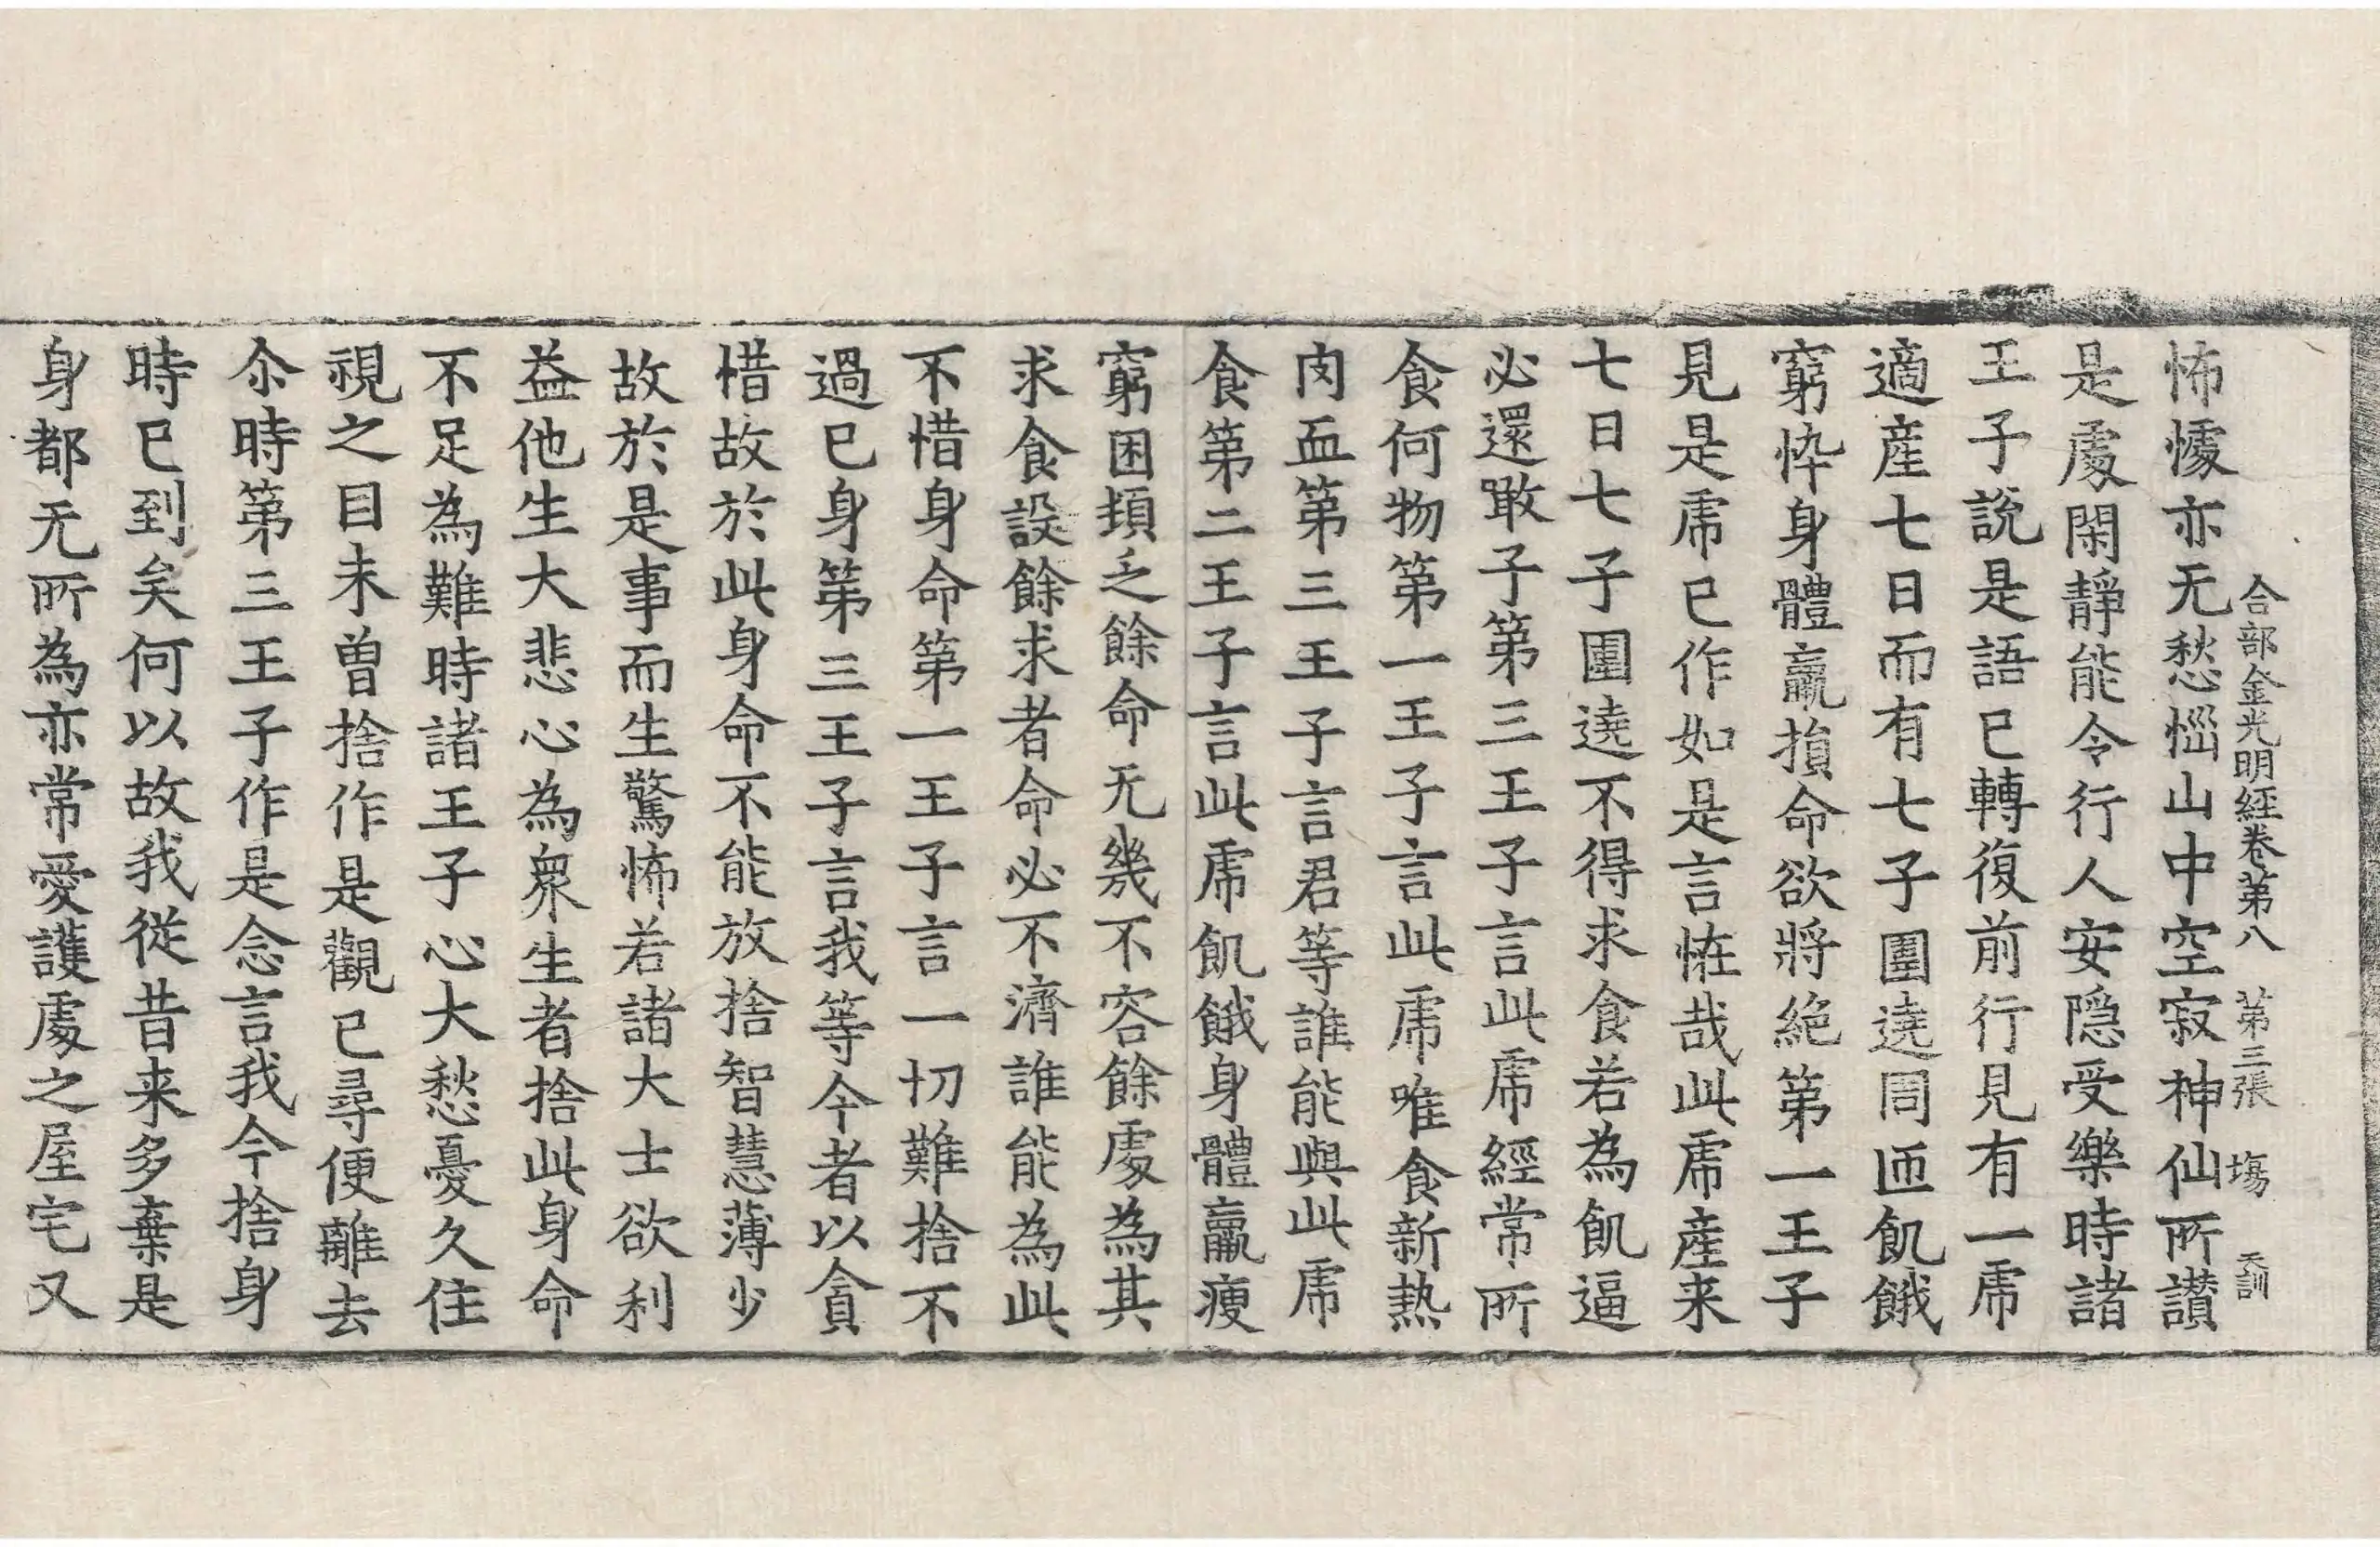 合部金光明経卷第八 第三張 塲 天訓
怖懅亦无愁惱山中空寂神仙所讃
是處閑靜能令行人安隱受樂時諸
王子說是語已轉復前行見有一虎
適産七日而有七子圍遶周匝飢餓
窮悴身體羸損命欲將絶第一王子
見是虎已作如是言恠哉此虎産来
七日七子圍遶不得求食若為飢逼
必還噉子第三王子言此虎經常所
食何物第一王子言此虎唯食新熱
肉血第三王子言君等誰能與此虎
食第二王子言此虎飢餓身體羸瘦
窮困頓乏餘命无幾不容餘處為其
求食設餘求者命必不濟誰能為此
不惜身命第一王子言一切難捨不
過己身第三王子言我等今者以貪
惜故於此身命不能放捨智慧薄少
故於是事而生驚怖若諸大士欲利
益他生大悲心為衆生者捨此身命
不足為難時諸王子心大愁憂久住
視之目未曽捨作是觀已尋便離去
尒時第三王子作是念言我今捨身
時已到矣何以故我從昔来多棄是
身都无所為亦常愛護處之屋宅又